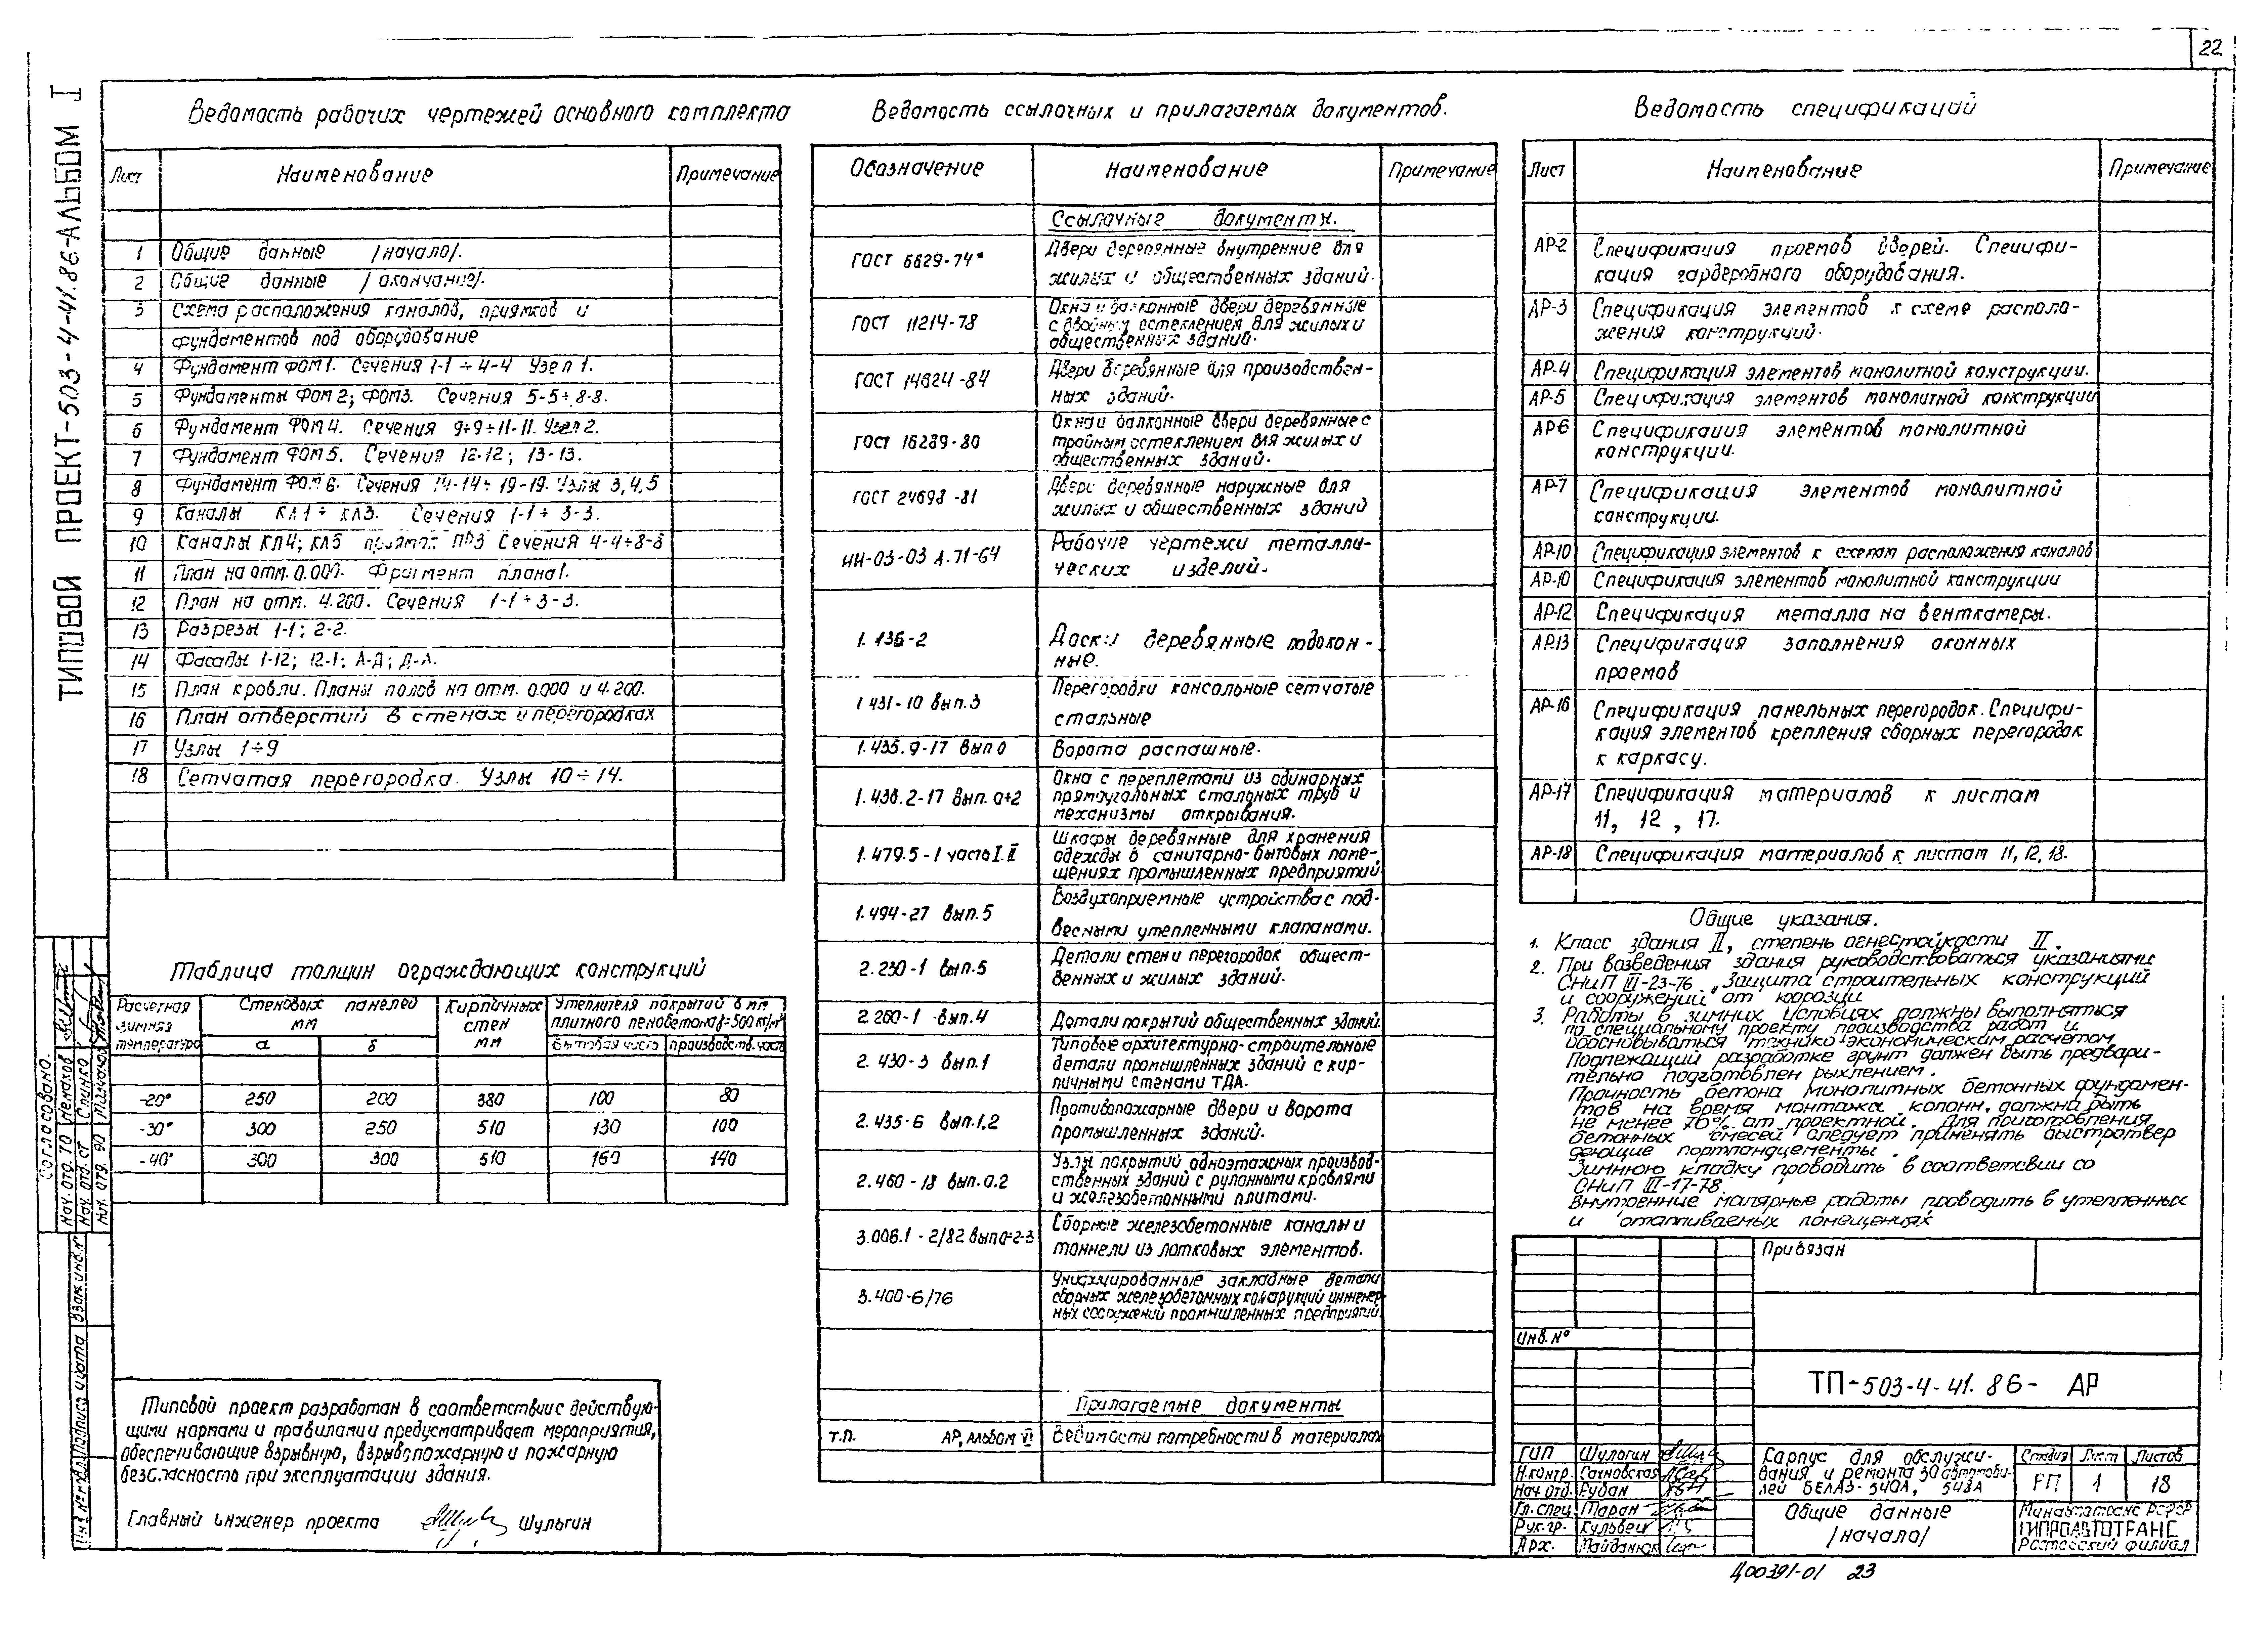 22
ТИПОВОЙ ПРОЕКТ-503-4-41.86-АЛЬБОМ I
Ведомость рабочих чертежей основного комплекта
Лист Наименование Примечание
1 Общие данные /начало/.
2 Общие данные /окончание/.
3 Схема расположения каналов, приямков и
фундаментов под оборудование
4 Фундамент ФОМ1. Сечения 1-1 ÷ 4-4 Узел 1.
5 Фундаменты ФОМ2; ФОМ3. Сечения 5-5÷8-8.
6 Фундамент ФОМ4. Сечения 9÷9÷11-11. Узел 2.
7 Фундамент ФОМ5. Сечения 12-12; 13-13.
8 Фундамент ФОМ6. Сечения 14-14÷19-19. Узлы 3,4,5
9 Каналы КЛ1÷КЛ3. Сечения 1-1÷3-3.
10 Каналы КЛ4; КЛ5 Сечения 4-4÷8-8
11 План на отм. 0.000. Фрагмент плана 1.
12 План на отм. 4.200. Сечения 1-1÷3-3.
13 Разрезы 1-1; 2-2.
14 Фасады 1-12; 12-1; А-Д; Д-А.
15 План кровли. Планы полов на отм. 0.000 и 4.200.
16 План отверстий в стенах и перегородках
17 Узлы 1÷9
18 Сетчатая перегородка. Узлы 10÷14.
Таблица толщин ограждающих конструкций
Расчетная зимняя температура Стеновых панелей мм Кирпичных стен мм Утеплителя покрытий в мм плитного пенобетона γ=500 кг/м³
а б бытовая часть производств. часть
-20° 250 200 380 100 80
-30° 300 250 510 130 100
-40° 300 300 510 160 140
Типовой проект разработан в соответствии с действую-
щими нормами и правилами и предусматривает мероприятия,
обеспечивающие взрывную, взрывопожарную и пожарную
безопасность при эксплуатации здания.
Главный инженер проекта Шульгин
Ведомость ссылочных и прилагаемых документов.
Обозначение Наименование Примечание
Ссылочные документы.
ГОСТ 6629-74* Двери деревянные внутренние для
жилых и общественных зданий.
ГОСТ 11214-78 Окна и балконные двери деревянные
с двойным остеклением для жилых и
общественных зданий.
ГОСТ 14624-84 Двери деревянные для производствен-
ных зданий.
ГОСТ 16289-80 Окна и балконные двери деревянные с
тройным остеклением для жилых и
общественных зданий.
ГОСТ 24698-81 Двери деревянные наружные для
жилых и общественных зданий
ИИ-03-03 А.71-64 Рабочие чертежи металли-
ческих изделий.
1.136-2 Доски деревянные подокон-
ные.
1.431-10 вып.3 Перегородки консольные сетчатые
стальные
1.435.9-17 вып 0 Ворота распашные.
1.436.2-17 вып. 0÷2 Окна с переплетами из одинарных
прямоугольных стальных труб и
механизмы открывания.
1.479.5-1 часть I.II Шкафы деревянные для хранения
одежды в санитарно-бытовых поме-
щениях промышленных предприятий
1.494-27 вып.5 Воздухоприемные устройства с под-
весными утепленными клапанами.
2.230-1 вып.5 Детали стен и перегородок общест-
венных и жилых зданий.
2.260-1 вып.4 Детали покрытий общественных зданий.
2.430-3 вып.1 Типовые архитектурно-строительные
детали промышленных зданий с кир-
пичными стенами ТДА.
2.435-6 вып.1,2 Противопожарные двери и ворота
промышленных зданий.
2.460-18 вып.0.2 Узлы покрытий одноэтажных производ-
ственных зданий с рулонными кровлями
и железобетонными плитами.
3.006.1-2/82 вып 0÷2-3 Сборные железобетонные каналы и
тоннели из лотковых элементов.
3.400-6/76 Унифицированные закладные детали
сборных железобетонных конструкций инженер-
ных сооружений промышленных предприятий.
Прилагаемые документы
т.п. АР, альбом VI Ведомости потребности в материалах
Ведомость спецификаций
Лист Наименование Примечание
АР-2 Спецификация проемов дверей. Специфи-
кация гардеробного оборудования.
АР-3 Спецификация элементов к схеме располо-
жения конструкций.
АР-4 Спецификация элементов монолитной конструкции.
АР-5 Спецификация элементов монолитной конструкции
АР-6 Спецификация элементов монолитной
конструкции.
АР-7 Спецификация элементов монолитной
конструкции.
АР-10 Спецификация элементов к схемам расположения каналов
АР-10 Спецификация элементов монолитной конструкции
АР-12 Спецификация металла на венткамеры.
АР-13 Спецификация заполнения оконных
проемов
АР-16 Спецификация панельных перегородок. Специфи-
кация элементов крепления сборных перегородок
к каркасу.
АР-17 Спецификация материалов к листам
11, 12, 17.
АР-18 Спецификация материалов к листам 11,12,18.
Общие указания.
1. Класс здания II, степень огнестойкости II.
2. При возведения здания руководствоваться указаниями
СНиП III-23-76 „Защита строительных конструкций
и сооружений от коррозии
3. Работы в зимних условиях должны выполняться
по специальному проекту производства работ и
обосновываться технико-экономическим расчетом.
Подлежащий разработке грунт должен быть предвари-
тельно подготовлен рыхлением.
Прочность бетона монолитных бетонных фундамен-
тов на время монтажа колонн, должна быть
не менее 70% от проектной. Для приготовления
бетонных смесей следует применять быстротвер
деющие портландцементы.
Зимнюю кладку проводить в соответсвии со
СНиП III-17-78.
Внутренние малярные работы проводить в утепленных
и отапливаемых помещениях
Привязан
Инв.N°
ТП-503-4-41.86- АР
ГИП Шульгин
Н.контр. Сахновская
Нач.отд. Рудан
Гл.спец Таран
Рук.гр. Кульбец
Арх. Майданюк
Корпус для обслужи-
вания и ремонта 30 автомоби-
лей БЕЛАЗ-540А, 548А
Стадия Лист Листов
РП 1 18
Общие данные
/начало/
Минавтотранс РСФСР
ГИПРОАВТОТРАНС
Ростовский филиал
Ц00391-01 23
Согласовано.
Нач. отд. ТО
Нач. отд. СТ
Нач. отд. ЭО
Подпись и дата
Взам.инв.N°